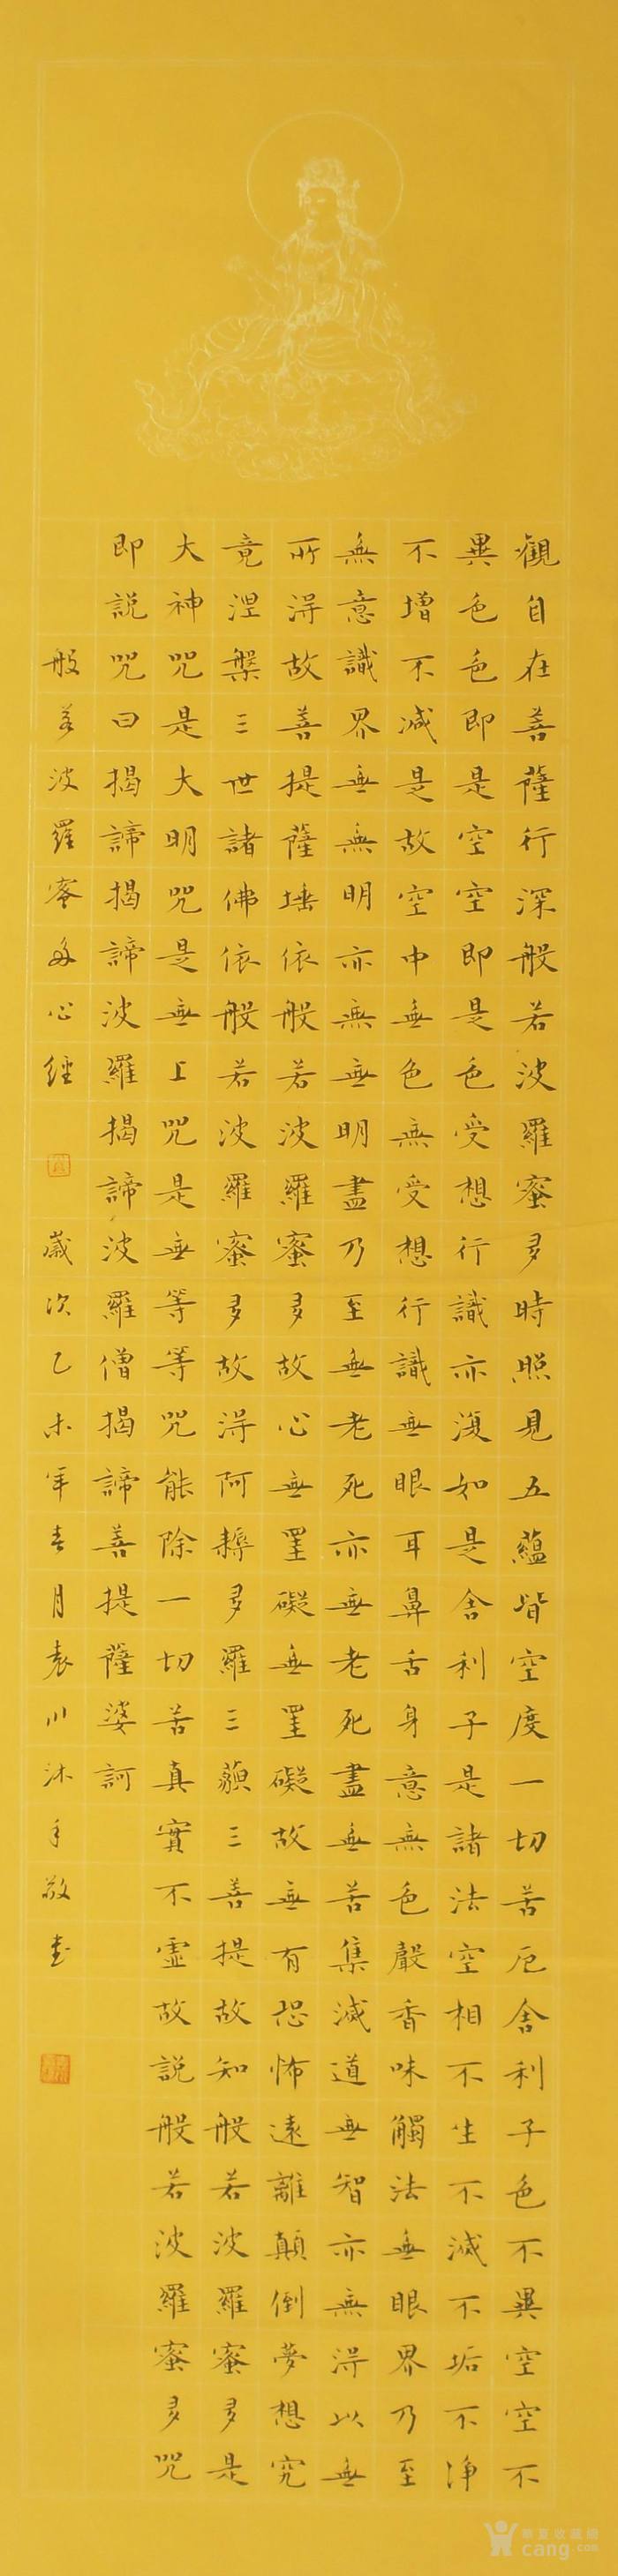 觀自在菩薩行深般若波羅蜜多時照見五蘊皆空度一切苦厄舍利子色不異空空不
異色色即是空空即是色受想行識亦復如是舍利子是諸法空相不生不滅不垢不淨
不增不減是故空中無色無受想行識無眼耳鼻舌身意無色聲香味觸法無眼界乃至
無意識界無無明亦無無明盡乃至無老死亦無老死盡無苦集滅道無智亦無得以無
所得故菩提薩埵依般若波羅蜜多故心無罣礙無罣礙故無有恐怖遠離顛倒夢想究
竟涅槃三世諸佛依般若波羅蜜多故得阿耨多羅三藐三菩提故知般若波羅蜜多是
大神咒是大明咒是無上咒是無等等咒能除一切苦真實不虛故說般若波羅蜜多咒
即說咒曰揭諦揭諦波羅揭諦波羅僧揭諦菩提薩婆訶
般若波羅蜜多心經 歲次乙未年春月袁川沐手敬書
華夏收藏網
cang.com